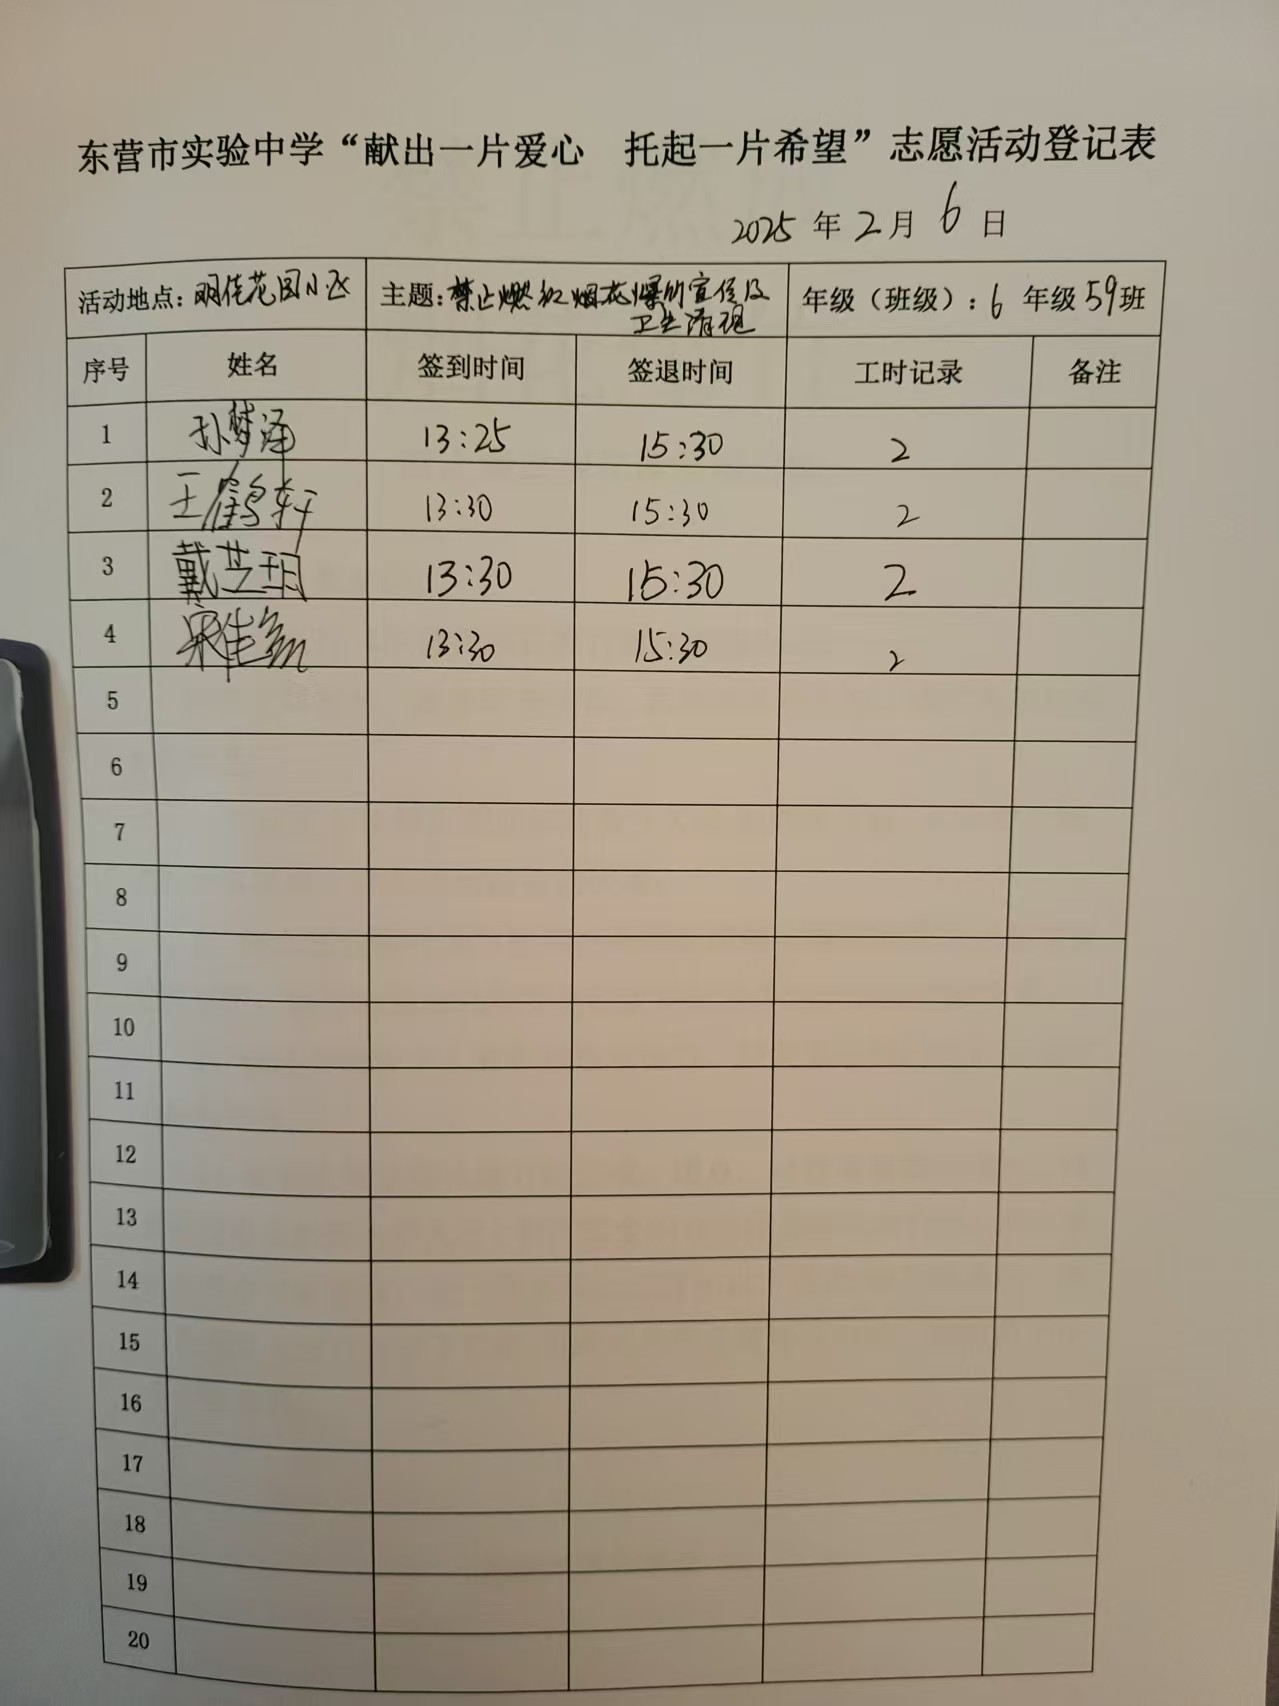 东营市实验中学“献出一片爱心 托起一片希望”志愿活动登记表
2025 年 2 月 6 日
活动地点：明佳花园小区 主题：禁止燃放烟花爆竹宣传及 年级（班级）：6 年级 59 班
卫生清理
序号 姓名 签到时间 签退时间 工时记录 备注
1 孙梦泽 13:25 15:30 2
2 王鹤轩 13:30 15:30 2
3 戴芝玥 13:30 15:30 2
4 宋佳 13:30 15:30 2
5
6
7
8
9
10
11
12
13
14
15
16
17
18
19
20